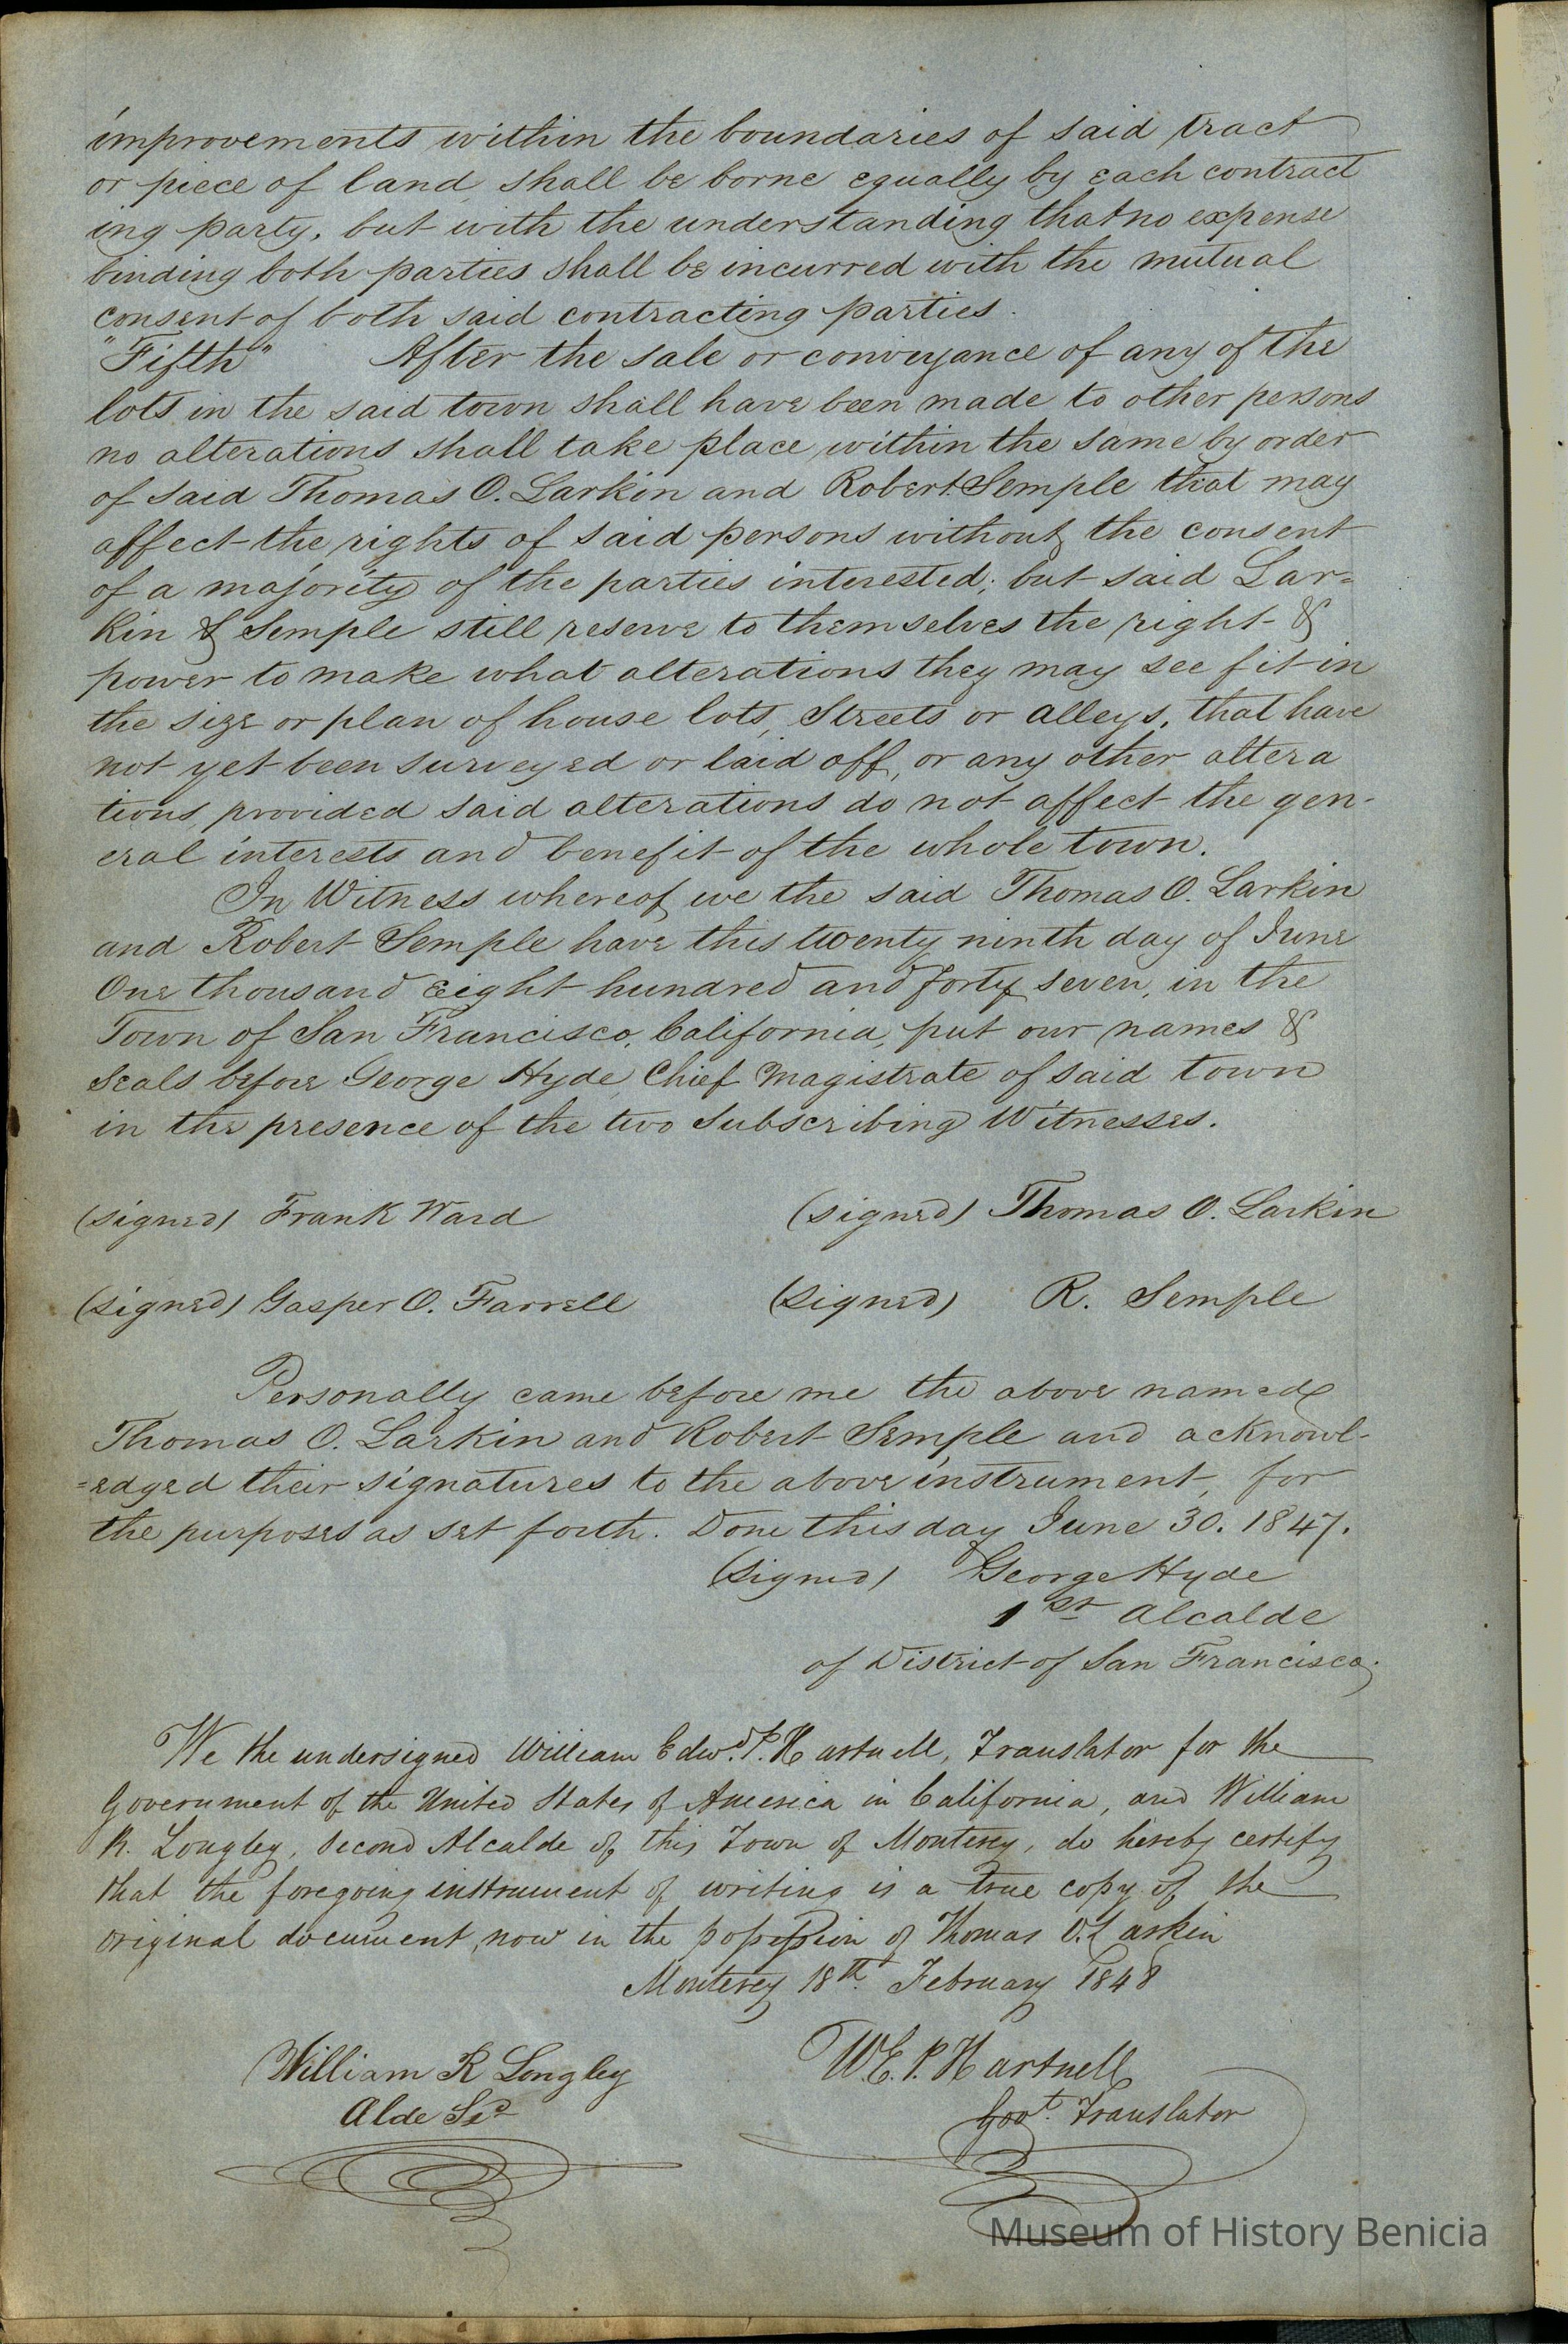 improvements within the boundaries of said tract
or piece of land shall be borne equally by each contract
ing party, but with the understanding that no expense
binding both parties shall be incurred with the mutual
consent of both said contracting parties.
"Fifth" After the sale or conveyance of any of the
lots in the said town shall have been made to other persons
no alterations shall take place within the same by order
of said Thomas O. Larkin and Robert Semple that may
affect the rights of said persons without the consent
of a majority of the parties interested; but said Lar=
kin & Semple still reserve to themselves the right &
power to make what alterations they may see fit in
the size or plan of house lots, Streets or alleys, that have
not yet been surveyed or laid off, or any other altera
tions, provided said alterations do not affect the gen-
eral interests and benefit of the whole town.
In Witness whereof, we the said Thomas O. Larkin
and Robert Semple have this twenty ninth day of June
One thousand Eight hundred and forty seven, in the
Town of San Francisco, California, put our names &
Seals before George Hyde, Chief Magistrate of said town
in the presence of the two Subscribing Witnesses.
(signed) Frank Ward (signed) Thomas O. Larkin
(signed) Gasper O. Farrell (signed) R. Semple
Personally came before me the above named
Thomas O. Larkin and Robert Semple and acknowl-
=edged their signatures to the above instrument, for
the purposes as set forth. Done this day June 30. 1847.
(signed) George Hyde
1st Alcalde
of District of San Francisco.
We the undersigned William Edwd. P. Hartnell, Translator for the
Government of the United States of America in California, and William
R. Longley, Second Alcalde of this Town of Monterey, do hereby certify
that the foregoing instrument of writing is a true copy of the
original document, now in the possession of Thomas O. Larkin
Monterey 18th. February 1848
William R Longley W.E.P. Hartnell
Alde Sd Govt. Translator
Museum of History Benicia